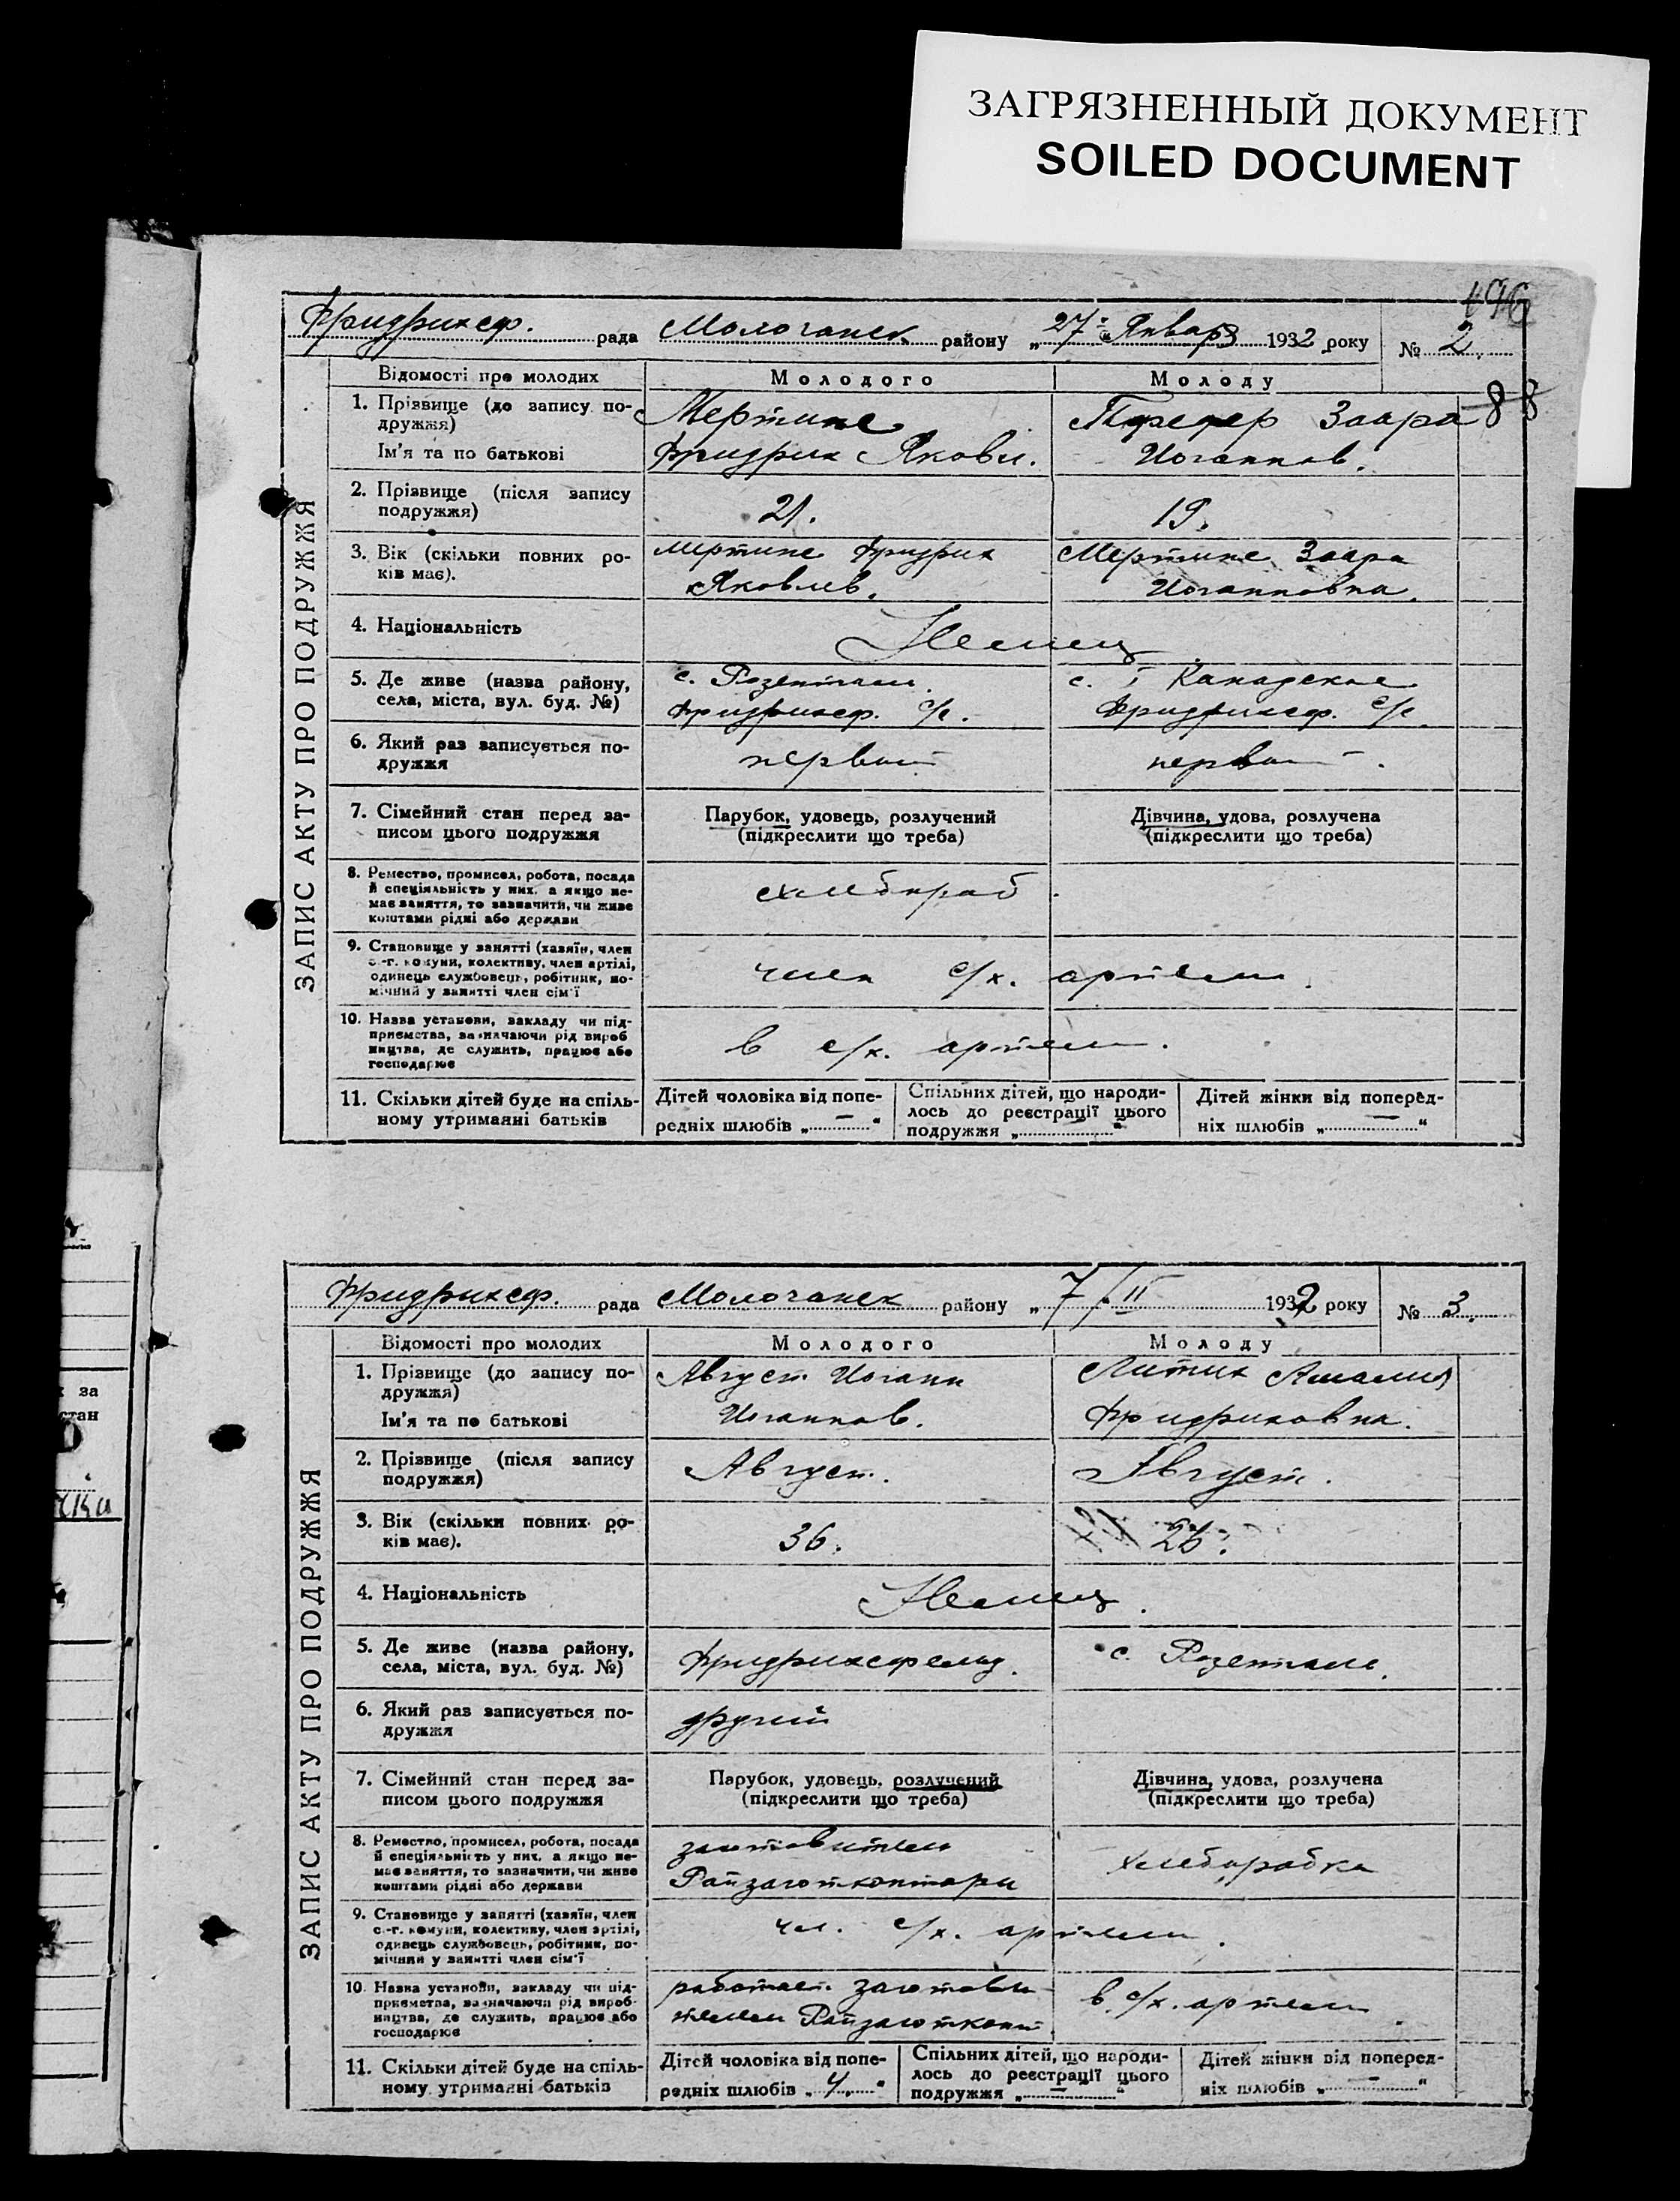 ЗАГРЯЗНЕННЫЙ ДОКУМЕНТ
SOILED DOCUMENT
196
Фридрихсф. рада Молочанск району „27“ Января 1932 року № 2.
Відомості про молодих Молодого Молоду
88
1. Прізвище (до запису по-
дружжя)
Ім'я та по батькові
Мертине
Фридрих Яковл.
Заара
Иоганнов.
2. Прізвище (після запису
подружжя)
21. 19.
3. Вік (скільки повних ро-
ків має).
Мертине Фридрих
Яковлев.
Мертине Заара
Иоганновна.
4. Національність
Немец
5. Де живе (назва району,
села, міста, вул. буд. №)
с. Розенталь
Фридрихсф. с/с.
с. I Канадское
Фридрихсф. с/с
6. Який раз записується по-
дружжя
первый первый.
7. Сімейний стан перед за-
писом цього подружжя
Парубок, удовець, розлучений
(підкреслити що треба)
Дівчина, удова, розлучена
(підкреслити що треба)
8. Ремество, промисел, робота, посада
й спеціяльність у них, а якщо не-
має заняття, то зазначити, чи живе
коштами рідні або держави
хлебороб
9. Становище у занятті (хазяїн, член
с.-г. комуни, колективу, член артілі,
одинець службовець, робітник, по-
мічний у занятті член сім'ї
член с/х. артели.
10. Назва установи, закладу чи під-
приємства, зазначаючи рід вироб
ництва, де служить, працює або
господарює
в с/х. артели.
11. Скільки дітей буде на спіль-
ному утриманні батьків
Дітей чоловіка від попе-
редніх шлюбів „ — “
Спільних дітей, що народи-
лось до реєстрації цього
подружжя „ “
Дітей жінки від поперед-
ніх шлюбів „ — “
ЗАПИС АКТУ ПРО ПОДРУЖЖЯ
Фридрихсф. рада Молочанск району „7/II 1932 року № 3.
Відомості про молодих Молодого Молоду
1. Прізвище (до запису по-
дружжя)
Ім'я та по батькові
Август Иоганн
Иоганнов.
Литик Амалия
Фридриховна.
2. Прізвище (після запису
подружжя)
Август. Август.
3. Вік (скільки повних ро-
ків має).
36. 26.
4. Національність
Немец.
5. Де живе (назва району,
села, міста, вул. буд. №)
Фридрихсфельд. с. Розенталь.
6. Який раз записується по-
дружжя
другий
7. Сімейний стан перед за-
писом цього подружжя
Парубок, удовець, розлучений
(підкреслити що треба)
Дівчина, удова, розлучена
(підкреслити що треба)
8. Ремество, промисел, робота, посада
й спеціяльність у них, а якщо не-
має заняття, то зазначити, чи живе
коштами рідні або держави
заготовитель
Райзаготконтори
хлеборобка
9. Становище у занятті (хазяїн, член
с.-г. комуни, колективу, член артілі,
одинець службовець, робітник, по-
мічний у занятті член сім'ї
чл. с/х. артели.
10. Назва установи, закладу чи під-
приємства, зазначаючи рід вироб-
ництва, де служить, працює або
господарює
работает заготови-
телем Райзаготконт
в с/х. артели.
11. Скільки дітей буде на спіль-
ному утриманні батьків
Дітей чоловіка від попе-
редніх шлюбів „ 4. “
Спільних дітей, що народи-
лось до реєстрації цього
подружжя „ — “
Дітей жінки від поперед-
ніх шлюбів „ — “
ЗАПИС АКТУ ПРО ПОДРУЖЖЯ
за
стан